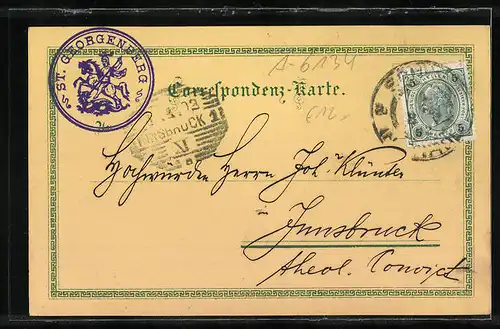 ST. GEORGENBERG
A-6134
Correspondenz-Karte.
INNSBRUCK 1
XI
Hochwürden Herrn Joh. Klünter
Innsbruck
theol. Convict